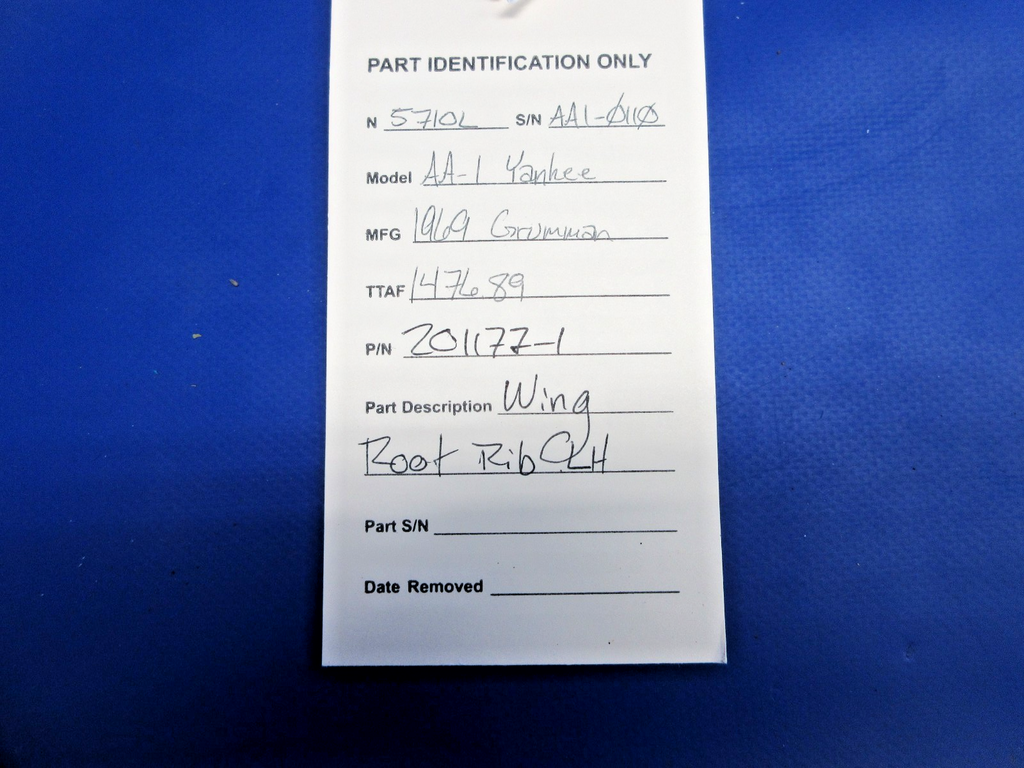 PART IDENTIFICATION ONLY
N 5710L S/N AA1-0110
Model AA-1 Yankee
MFG 1969 Grumman
TTAF 1476.89
P/N 201177-1
Part Description Wing
Root Rib LH
Part S/N
Date Removed